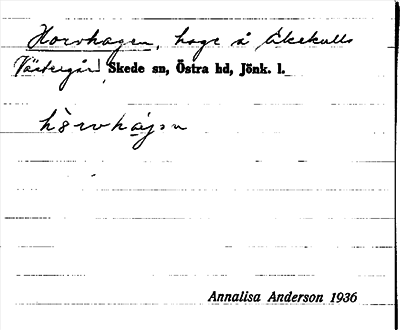 Horvhagen, hage å Åkekulls
Västergård Skede sn, Östra hd, Jönk. l.
hòrvhɑ̀jən
Annalisa Anderson 1936